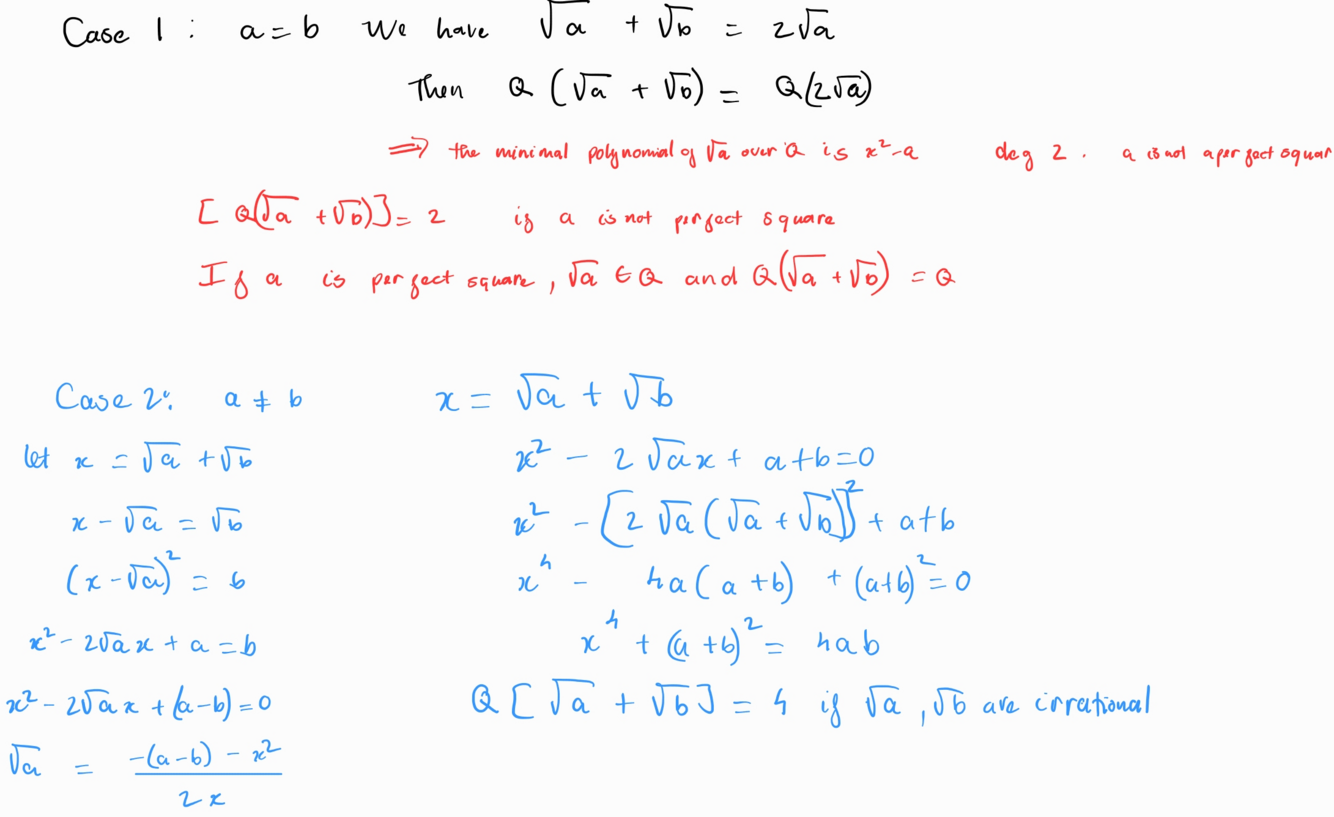 Case 1 : a = b We have √a + √b = 2√a
Then Q (√a + √b) = Q(2√a)
⇒ the minimal polynomial of √a over Q is x²-a deg 2 . a is not a perfect squar
[ Q(√a + √b)] = 2 if a is not perfect square
If a is perfect square, √a ∈ Q and Q(√a + √b) = Q
Case 2: a ≠ b
let x = √a + √b
x - √a = √b
(x - √a)² = b
x² - 2√a x + a = b
x² - 2√a x + (a-b) = 0
√a = (-(a-b) - x²) / 2x
x = √a + √b
x² - 2√a x + a+b = 0
x² - [2√a (√a + √b)]² + a+b
x⁴ - 4a(a+b) + (a+b)² = 0
x⁴ + (a+b)² = 4ab
Q [√a + √b] = 4 if √a , √b are irrational